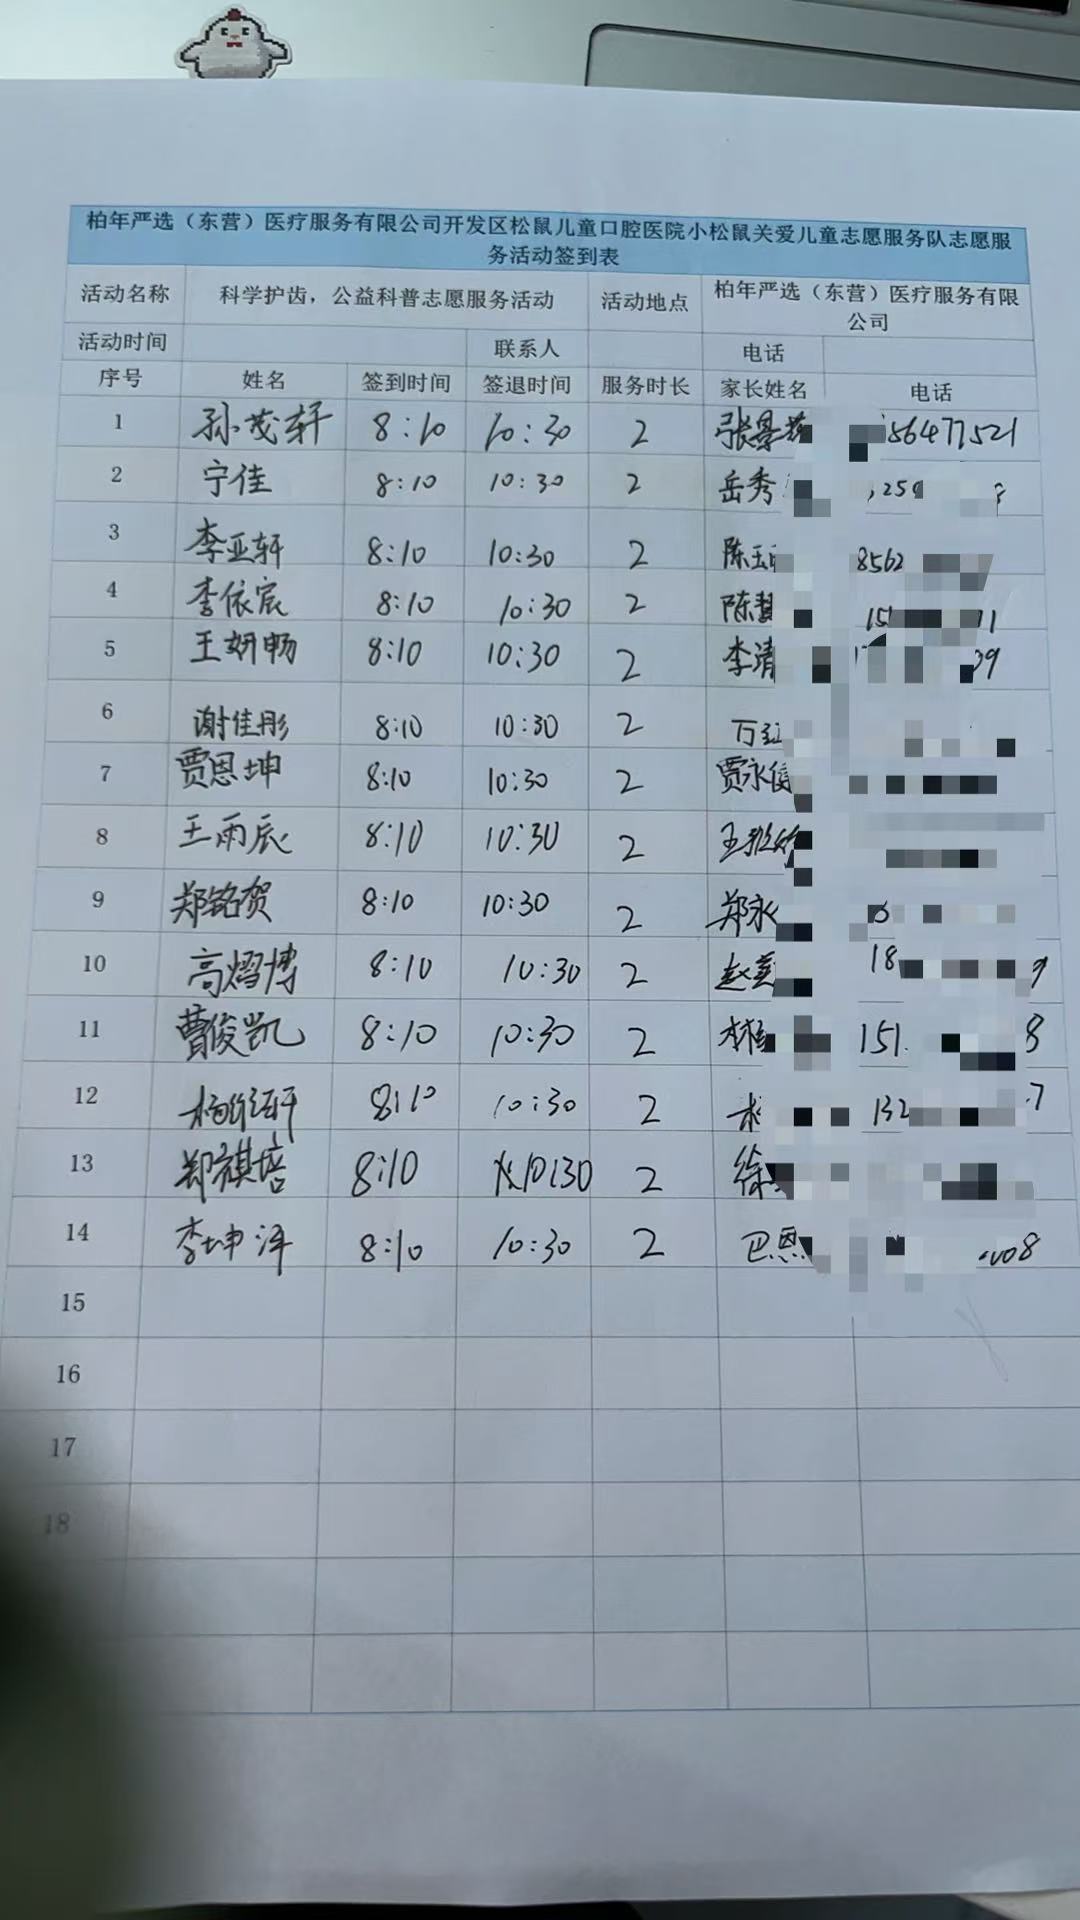 柏年严选（东营）医疗服务有限公司开发区松鼠儿童口腔医院小松鼠关爱儿童志愿服务队志愿服
务活动签到表
活动名称 科学护齿，公益科普志愿服务活动 活动地点 柏年严选（东营）医疗服务有限
公司
活动时间 联系人 电话
序号 姓名 签到时间 签退时间 服务时长 家长姓名 电话
1 孙茂轩 8:10 10:30 2 张景 56477521
2 宁佳 8:10 10:30 2 岳秀
3 李亚轩 8:10 10:30 2 陈玉 8562
4 李依宸 8:10 10:30 2 陈
5 王妍畅 8:10 10:30 2 李清
6 谢佳彤 8:10 10:30 2 万
7 贾恩坤 8:10 10:30 2 贾永
8 王雨辰 8:10 10:30 2 王
9 郑铭贺 8:10 10:30 2 郑永
10 高熠博 8:10 10:30 2 赵 18
11 曹俊凯 8:10 10:30 2 151 8
12 8:10 10:30 2 132 7
13 郑祺培 8:10 10:30 2 徐
14 李坤泽 8:10 10:30 2 巴恩 08
15
16
17
18